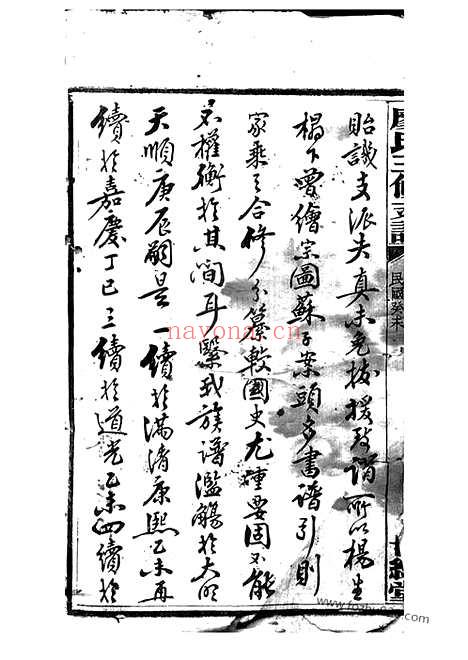 廖氏三修支譜
民國癸未
貽譏支派失真未免扳援致誚所以楊生
榻下曾繪宗圖蘇子案頭多書譜引則
家乘之合修分纂較國史尤重要固不能
不權衡於其間耳繄我族譜濫觴於大明
天順庚辰嗣是一續於滿清康熙乙未再
續於嘉慶丁巳三續於道光乙未四續於
nayona.cn